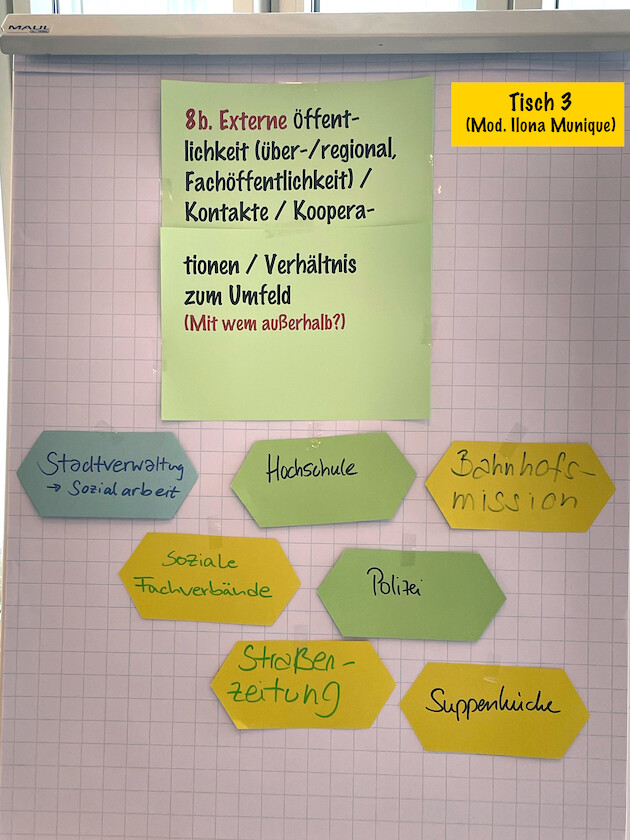 MAUL
Tisch 3
(Mod. Ilona Munique)
8b. Externe öffent-
lichkeit (über-/regional,
Fachöffentlichkeit) /
Kontakte / Koopera-
tionen / Verhältnis
zum Umfeld
(Mit wem außerhalb?)
Stadtverwaltung
→ Sozialarbeit
Hochschule
Bahnhofs-
mission
Soziale
Fachverbände
Polizei
Straßen-
zeitung
Suppenküche